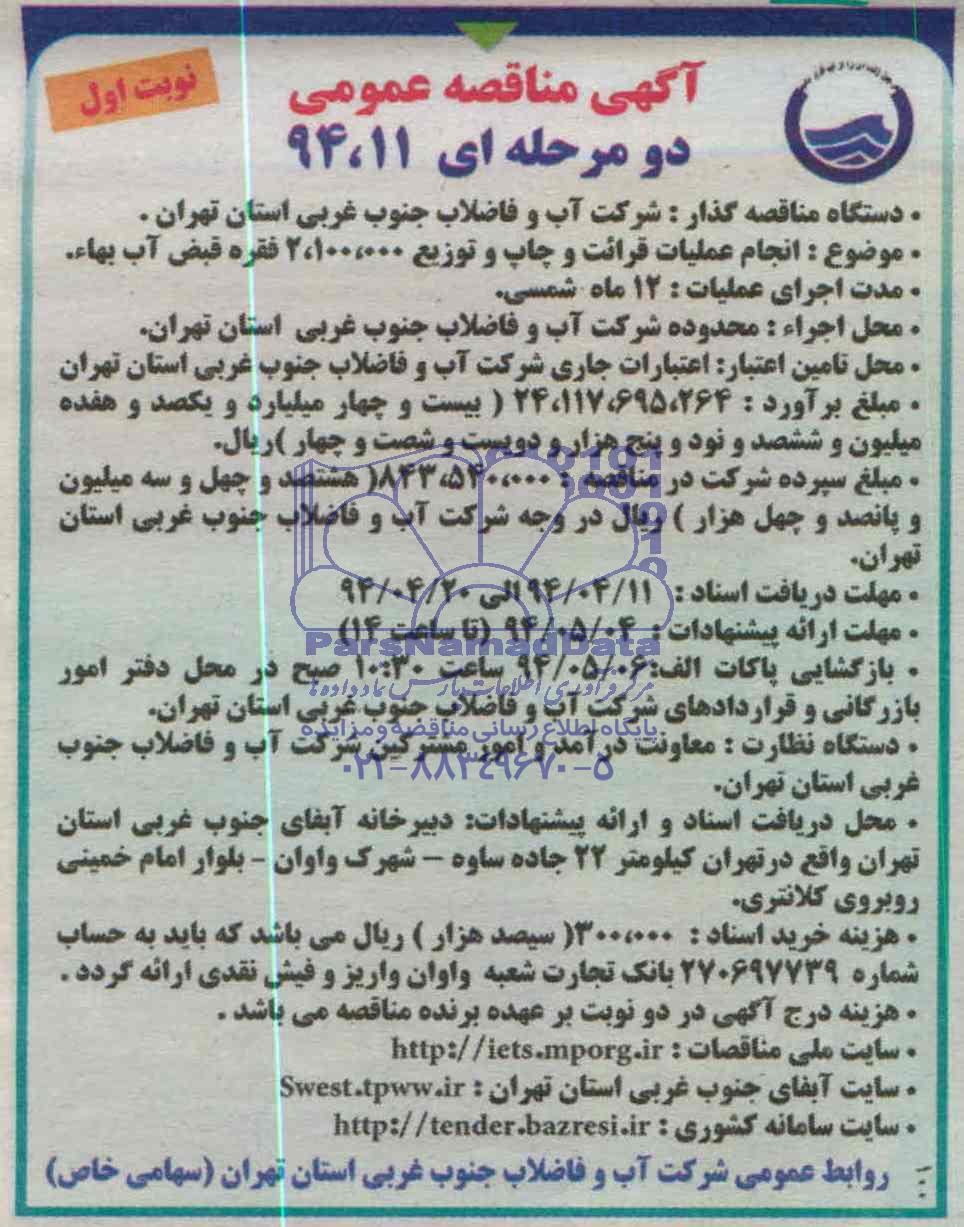 نوبت اول
آگهی مناقصه عمومی
دو مرحله ای ۹۴،۱۱
• دستگاه مناقصه گذار : شرکت آب و فاضلاب جنوب غربی استان تهران .
• موضوع : انجام عملیات قرائت و چاپ و توزیع ۲،۱۰۰،۰۰۰ فقره قبض آب بهاء.
• مدت اجرای عملیات : ۱۲ ماه شمسی.
• محل اجراء : محدوده شرکت آب و فاضلاب جنوب غربی استان تهران.
• محل تامین اعتبار: اعتبارات جاری شرکت آب و فاضلاب جنوب غربی استان تهران
• مبلغ برآورد : ۲۴،۱۱۷،۶۹۵،۲۶۴ ( بیست و چهار میلیارد و یکصد و هفده
میلیون و ششصد و نود و پنج هزار و دویست و شصت و چهار )ریال.
• مبلغ سپرده شرکت در مناقصه : ۸۴۳،۵۴۰،۰۰۰( هشتصد و چهل و سه میلیون
و پانصد و چهل هزار ) ریال در وجه شرکت آب و فاضلاب جنوب غربی استان
تهران.
• مهلت دریافت اسناد : ۹۴/۰۴/۱۱ الی ۹۴/۰۴/۲۰
• مهلت ارائه پیشنهادات : ۹۴/۰۵/۰۴ (تا ساعت ۱۴)
ParsNamadData
• بازگشایی پاکات الف:۹۴/۰۵/۰۶ ساعت ۱۰:۳۰ صبح در محل دفتر امور
مرکز فرآوری اطلاعات پارس نماد داده ها
بازرگانی و قراردادهای شرکت آب و فاضلاب جنوب غربی استان تهران.
پایگاه اطلاع رسانی مناقصه و مزایده
• دستگاه نظارت : معاونت درآمد و امور مشترکین شرکت آب و فاضلاب جنوب
۰۲۱-۸۸۳۴۹۶۷۰-۵
غربی استان تهران.
• محل دریافت اسناد و ارائه پیشنهادات: دبیرخانه آبفای جنوب غربی استان
تهران واقع درتهران کیلومتر ۲۲ جاده ساوه – شهرک واوان - بلوار امام خمینی
روبروی کلانتری.
• هزینه خرید اسناد : ۳۰۰،۰۰۰( سیصد هزار ) ریال می باشد که باید به حساب
شماره ۲۷۰۶۹۷۷۳۹ بانک تجارت شعبه واوان واریز و فیش نقدی ارائه گردد .
• هزینه درج آگهی در دو نوبت بر عهده برنده مناقصه می باشد .
• سایت ملی مناقصات : http://iets.mporg.ir
• سایت آبفای جنوب غربی استان تهران : Swest.tpww.ir
• سایت سامانه کشوری : http://tender.bazresi.ir
روابط عمومی شرکت آب و فاضلاب جنوب غربی استان تهران (سهامی خاص)